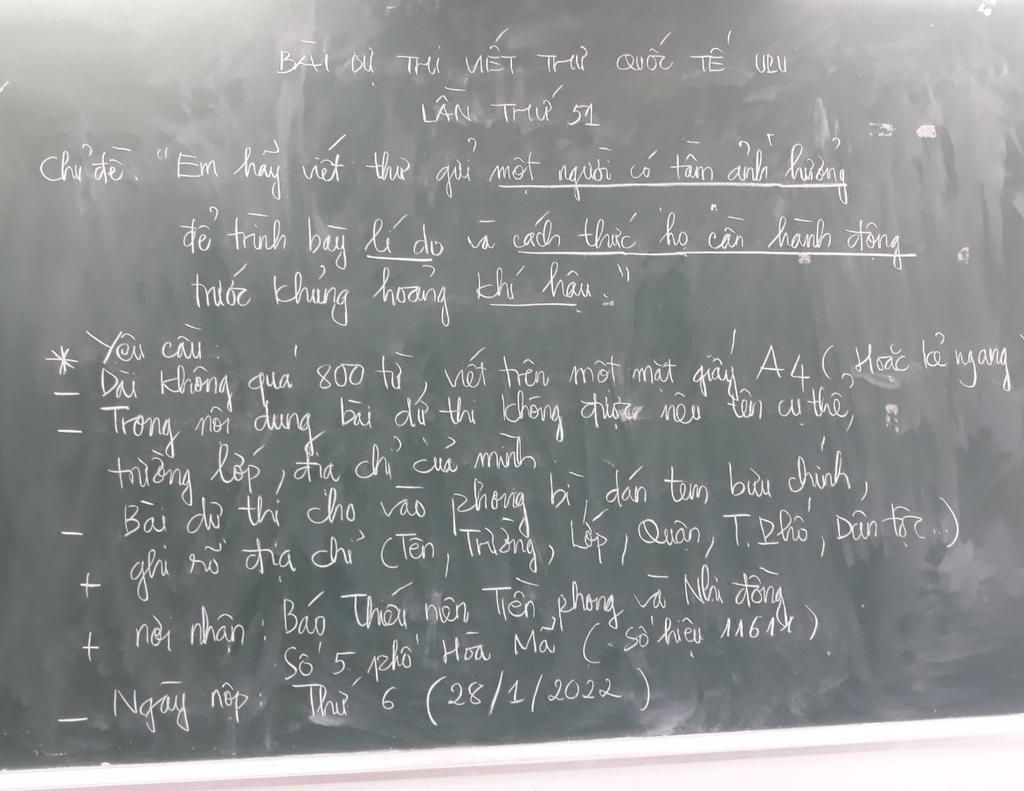 BÀI DỰ THI VIẾT THƯ QUỐC TẾ UPU
LẦN THỨ 51
Chủ đề: "Em hãy viết thư gửi một người có tầm ảnh hưởng
để trình bày lí do và cách thức họ cần hành động
trước khủng hoảng khí hậu."
* Yêu cầu:
- Dài không quá 800 từ, viết trên một mặt giấy A4 (Hoặc kẻ ngang)
- Trong nội dung bài dự thi không được nêu tên cụ thể,
trường lớp, địa chỉ của mình
- Bài dự thi cho vào phong bì, dán tem bưu chính,
+ ghi rõ địa chỉ (Tên, Trường, Lớp, Quận, T.Phố, Dân tộc...)
+ nơi nhận: Báo Thiếu niên Tiền phong và Nhi đồng
Số 5 phố Hòa Mã (Số hiệu 11611)
- Ngày nộp: Thứ 6 (28/1/2022)